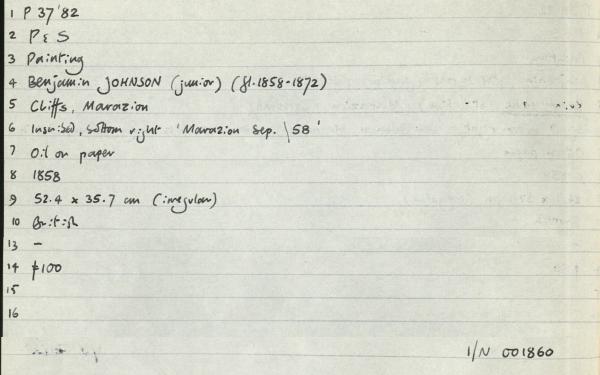 1 P 37 '82
2 P & S
3 Painting
4 Benjamin JOHNSON (junior) (fl.1858-1872)
5 Cliffs, Marazion
6 Inscribed, bottom right 'Marazion Sep. \58'
7 Oil on paper
8 1858
9 52.4 x 35.7 cm (irregular)
10 British
13 -
14 £100
15
16
I/N 001860